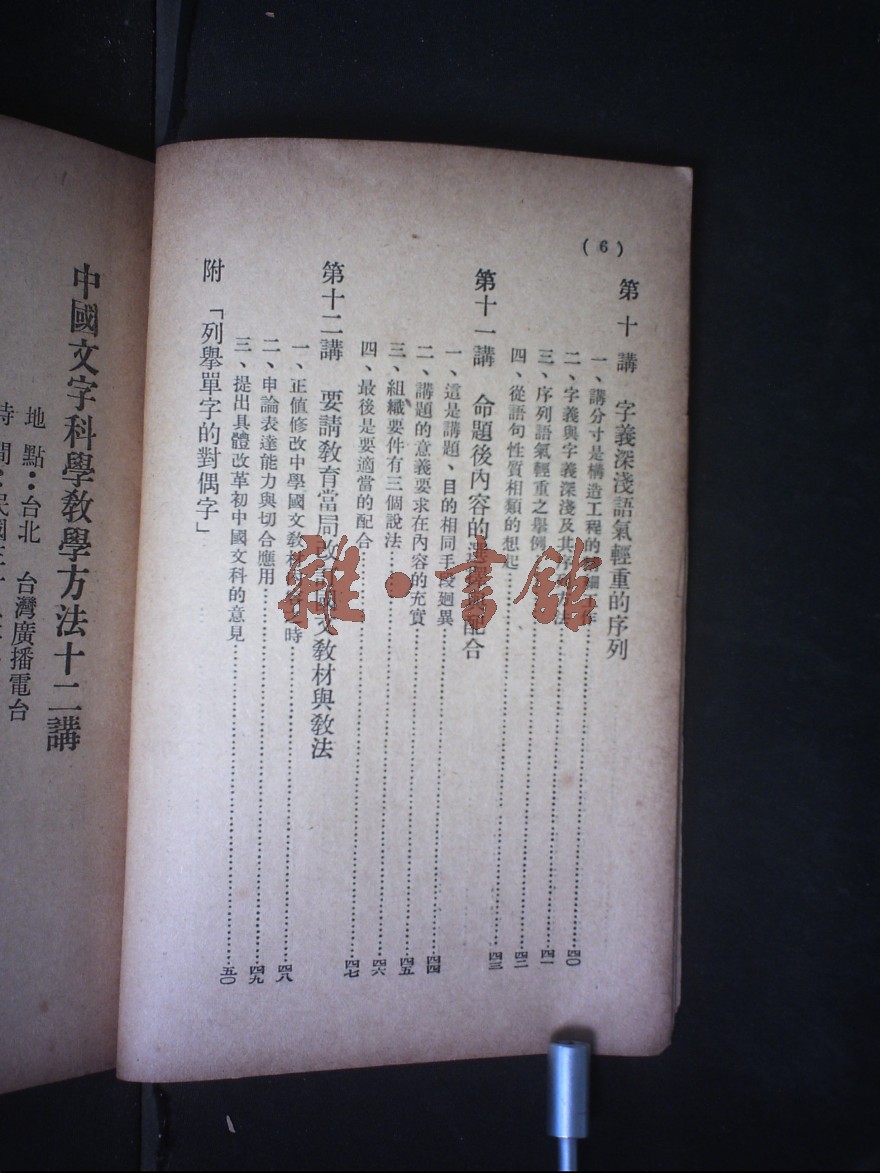 (6)
第十講　字義深淺語氣輕重的序列
一、講分寸是構造工程的
二、字義與字義深淺及其 方法 四〇
三、序列語氣輕重之舉例 四一
四、從語句性質相類的想起 四二
第十一講　命題後內容的選 配合 四三
一、這是講題、目的相同手段廻異
二、講題的意義要求在內容的充實 四四
三、組織要件有三個說法 四五
四、最後是要適當的配合 四六
四七
第十二講　要請教育當局改 國文教材與教法
一、正值修改中學國文教材 時 四八
二、申論表達能力與切合應用 四九
三、提出具體改革初中國文科的意見 五〇
附　「列舉單字的對偶字」
雜·書館
中國文字科學教學方法十二講
地點：台北　台灣廣播電台
時間：民國